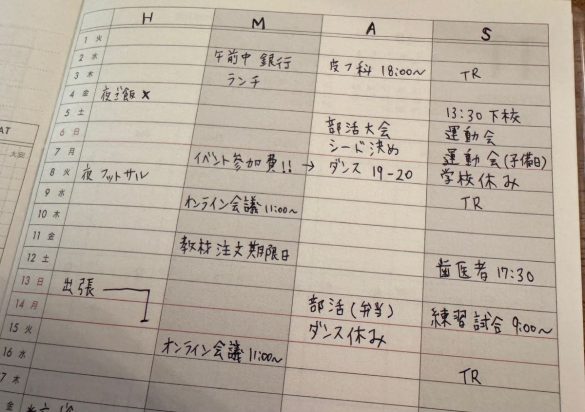 AT
大安
H M A S
1 火
2 水 午前中 銀行 皮フ科 18:00〜
3 木 ランチ TR
4 金 夜ご飯 ×
5 土 13:30 下校
6 日 部活大会 運動会
7 月 シード決め 運動会(予備日)
8 火 夜 フットサル イベント参加費!! → ダンス 19-20 学校休み
9 水 オンライン会議 11:00〜 TR
10 木
11 金 教材注文期限日
12 土 歯医者 17:30
13 日 出張
14 月 部活(弁当) 練習試合 9:00〜
15 火 ダンス休み
16 水 オンライン会議 11:00〜
7 木 TR
金